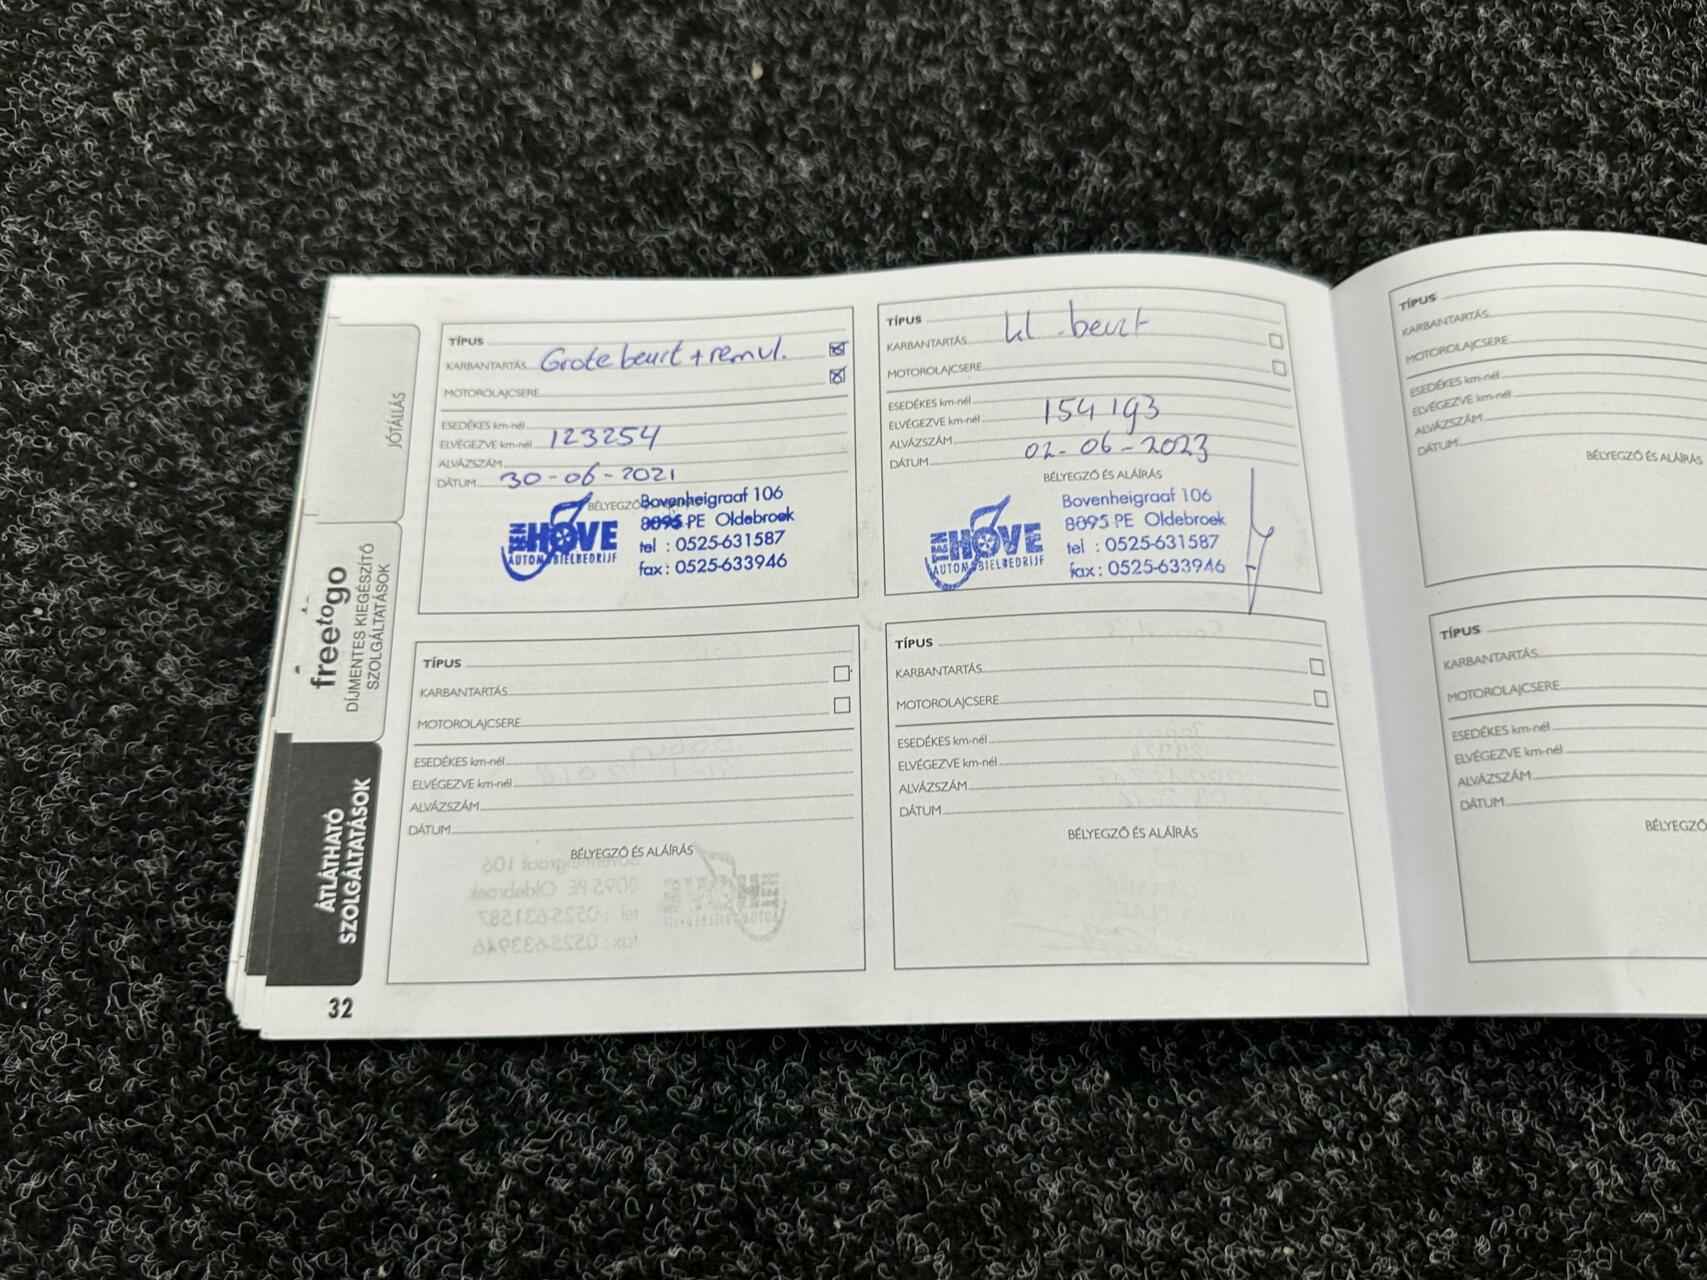 JÓTÁLLÁS
freetogo
DÍJMENTES KIEGÉSZÍTŐ
SZOLGÁLTATÁSOK
ÁTLÁTHATÓ
SZOLGÁLTATÁSOK
32
TÍPUS
KARBANTARTÁS Grote beurt + remvl.
MOTOROLAJCSERE
ESEDÉKES km-nél
ELVÉGEZVE km-nél 123254
ALVÁZSZÁM
DÁTUM 30-06-2021
BÉLYEGZŐ
TEN HOVE
AUTOMOBIELBEDRIJF
Bovenheigraaf 106
8095 PE Oldebroek
tel : 0525-631587
fax : 0525-633946
TÍPUS
KARBANTARTÁS kl. beurt
MOTOROLAJCSERE
ESEDÉKES km-nél
ELVÉGEZVE km-nél 154193
ALVÁZSZÁM
DÁTUM 02-06-2023
BÉLYEGZŐ ÉS ALÁÍRÁS
HOVE
AUTOMOBIELBEDRIJF
Bovenheigraaf 106
8095 PE Oldebroek
tel : 0525-631587
fax : 0525-633946
TÍPUS
KARBANTARTÁS
MOTOROLAJCSERE
ESEDÉKES km-nél
ELVÉGEZVE km-nél
ALVÁZSZÁM
DÁTUM
BÉLYEGZŐ ÉS ALÁÍRÁS
TÍPUS
KARBANTARTÁS
MOTOROLAJCSERE
ESEDÉKES km-nél
ELVÉGEZVE km-nél
ALVÁZSZÁM
DÁTUM
BÉLYEGZŐ ÉS ALÁÍRÁS
TÍPUS
KARBANTARTÁS
MOTOROLAJCSERE
ESEDÉKES km-nél
ELVÉGEZVE km-nél
ALVÁZSZÁM
DÁTUM
BÉLYEGZŐ ÉS ALÁÍRÁS
TÍPUS
KARBANTARTÁS
MOTOROLAJCSERE
ESEDÉKES km-nél
ELVÉGEZVE km-nél
ALVÁZSZÁM
DÁTUM
BÉLYEGZŐ